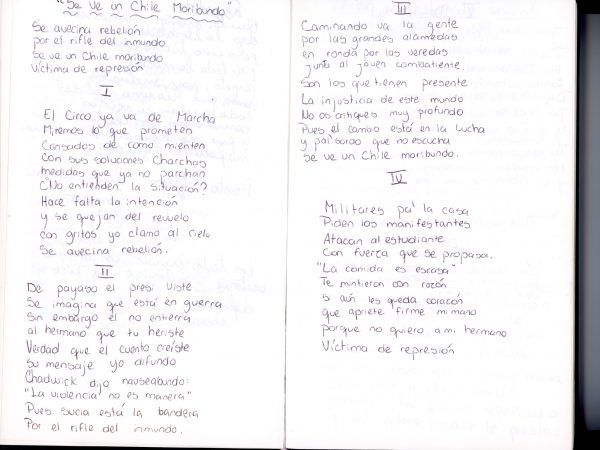 "Se ve un Chile Moribundo"
Se avecina rebelión
por el rifle del inmundo
Se ve un Chile moribundo
Víctima de represión
I
El Circo ya va de Marcha
Miremos lo que prometen
Cansados de como mienten
Con sus soluciones Charchas
medidas que ya no parchan
¿No entienden la situación?
Hace falta la intención
y se quejan del revuelo
con gritos yo clamo al cielo
Se avecina rebelión.
II
De payaso el presi viste
Se imagina que está en guerra
Sin embargo el no entierra
al hermano que tu heriste
Verdad que el cuento creíste
su mensaje yo difundo
Chadwick dijo nauseabundo:
"La violencia no es manera"
Pues sucia está la bandera
Por el rifle del inmundo.
III
Caminando va la gente
por las grandes alamedas
en ronda por las veredas
junto al joven combatiente.
Son los que tienen presente
La injusticia de este mundo
No os critiques muy profundo
Pues el cambio está en la lucha
y pa'l sordo que no escucha
Se ve un Chile moribundo.
IV
Militares pa' la casa
Piden los manifestantes
Atacan al estudiante
Con fuerza que se propasa.
"La comida es escasa"
Te mintieron con razón
si aún les queda corazón
que apriete firme mi mano
porque no quiero a mi hermano
Víctima de represión